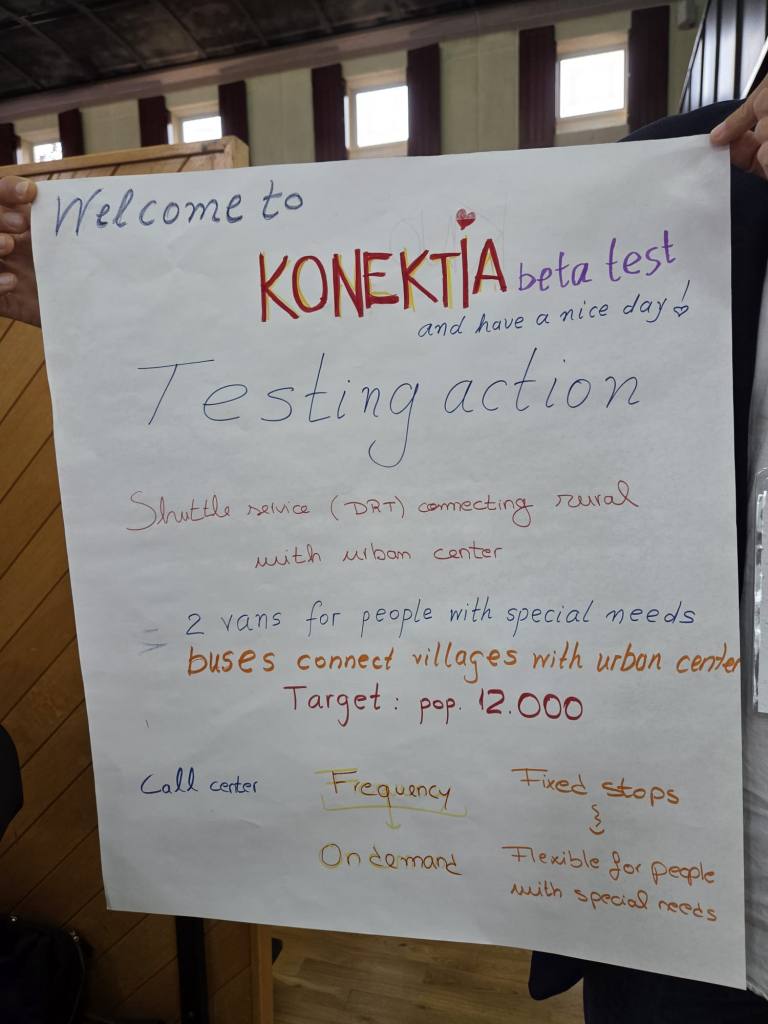 Welcome to
KONEKTIA beta test
and have a nice day!
Testing action
Shuttle service (DRT) connecting rural
with urban center
2 vans for people with special needs
buses connect villages with urban center
Target: pop. 12.000
Call center
Frequency
On demand
Fixed stops
Flexible for people
with special needs